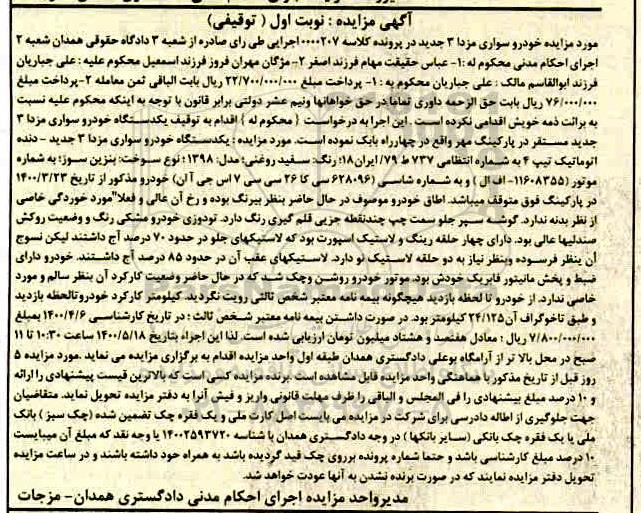 آگهی مزایده : نوبت اول ( توقیفی)
مورد مزایده خودرو سواری مزدا ۳ جدید در پرونده کلاسه ۰۰۰۰۲۰۷اجرایی طی رای صادره از شعبه ۳ دادگاه حقوقی همدان شعبه ۲
اجرای احکام مدنی محکوم له :۱- عباس حقیقت مهام فرزند اصغر ۲- مژگان مهران فروز فرزند اسمعیل محکوم علیه : علی جباریان
فرزند ابوالقاسم مالک : علی جباریان محکوم به :۱- پرداخت مبلغ ۲۲/۷۰۰/۰۰۰/۰۰۰ ریال بابت الباقی ثمن معامله ۲-پرداخت مبلغ
۷۶/۰۰۰/۰۰۰ ریال بابت حق الزحمه داوری تماما در حق خواهانها ونیم عشر دولتی برابر قانون با توجه به اینکه محکوم علیه نسبت
به برائت ذمه خویش اقدامی نکرده است . این اجرا به درخواست { محکوم له } اقدام به توقیف یکدستگاه خودرو سواری مزدا ۳
جدید مستقر در پارکینگ مهر واقع در چهارراه بابک نموده است. مورد مزایده : یکدستگاه خودرو سواری مزدا ۳ جدید - دنده
اتوماتیک تیپ ۴ به شماره انتظامی ۷۳۷ ط ۷۹/ ایران۱۸؛ رنگ: سفید روغنی؛ مدل: ۱۳۹۸ ؛ نوع سوخت: بنزین سوز؛ به شماره
موتور (۱۱۶۰۸۳۵۵- اف ال ) و به شماره شاسی (۶۲۸۰۹۶ سی کا ۲۶ سی سی ۷ اس جی آ ان) خودرو مذکور از تاریخ ۱۴۰۰/۳/۲۳
در پارکینگ فوق متوقف میباشد. اطاق خودرو موصوف در حال حاضر بنظر بیرنگ بوده و رخ آن عالی و فعلا"مورد خوردگی خاصی
از نظر بدنه ندارد. گوشه سپر جلو سمت چپ چندنقطه جزیی قلم گیری رنگ دارد. تودوزی خودرو مشکی رنگ و وضعیت روکش
صندلیها عالی بود. دارای چهار حلقه رینگ و لاستیک اسپورت بود که لاستیکهای جلو در حدود ۷۰ درصد آج داشتند لیکن نسوج
آن بنظر فرسوده وبنظر نیاز به دو حلقه لاستیک نو دارد. لاستیکهای عقب آن در حدود ۸۵ درصد آج داشتند. خودرو دارای
ضبط و پخش مانیتور فابریک خودش بود.موتور خودرو روشن وچک شد که در حال حاضر وضعیت کارکرد آن بنظر سالم و مورد
خاصی ندارد. از خودرو تا لحظه بازدید هیچگونه بیمه نامه معتبر شخص ثالثی رویت نگردید. کیلومتر کارکرد خودروتالحظه بازدید
و طبق تاخوگراف آن۲۴/۱۲۵ کیلومتر بود. در صورت داشتن بیمه نامه معتبر شخص ثالث : در تاریخ کارشناسی ۱۴۰۰/۴/۶ بمبلغ
۷/۸۰۰/۰۰۰/۰۰۰ ریال : معادل هفتصد و هشتاد میلیون تومان ارزیابی شده است. لذا این اجراء بتاریخ ۱۴۰۰/۵/۱۸ ساعت ۱۰:۳۰ تا ۱۱
صبح در محل بالا تر از آرامگاه بوعلی دادگستری همدان طبقه اول واحد مزایده اقدام به برگزاری مزایده می نماید .مورد مزایده ۵
روز قبل از تاریخ مذکور با هماهنگی واحد مزایده قابل مشاهده است .برنده مزایده کسی است که بالاترین قیمت پیشنهادی را ارائه
و ۱۰ درصد مبلغ پیشنهادی را فی المجلس و الباقی را ظرف مهلت قانونی واریز و فیش آنرا به دفتر مزایده تحویل نماید. متقاضیان
جهت جلوگیری از اطاله دادرسی برای شرکت در مزایده می بایست اصل کارت ملی و یک فقره چک تضمین شده (چک سبز ) بانک
ملی یا یک فقره چک بانکی (سایر بانکها ) در وجه دادگستری همدان با شناسه ۱۴۰۰۲۵۹۳۷۲۰ یا وجه نقد که مبلغ آن میبایست
۱۰ درصد مبلغ کارشناسی باشد و حتما شماره پرونده برروی چک قید گردیده باشد به همراه خود داشته باشند و در ساعت مزایده
تحویل دفتر مزایده نمایند که در صورت برنده نشدن به آنها عودت خواهد شد.
مدیرواحد مزایده اجرای احکام مدنی دادگستری همدان- مزجات